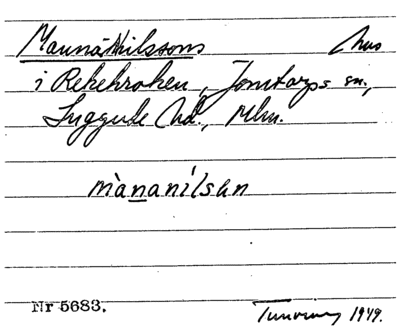 Maunä Nilssons hus
i Rekekroken, Jonstorps sn.,
Luggude hd., Mlm.
mànanílsän
Nr 5683. 1949.